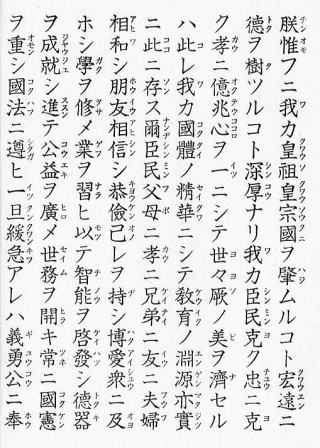 朕惟フニ我カ皇祖皇宗國ヲ肇ムルコト宏遠ニ
德ヲ樹ツルコト深厚ナリ我カ臣民克ク忠ニ克
ク孝ニ億兆心ヲ一ニシテ世々厥ノ美ヲ濟セル
ハ此レ我カ國體ノ精華ニシテ教育ノ淵源亦實
ニ此ニ存ス爾臣民父母ニ孝ニ兄弟ニ友ニ夫婦
相和シ朋友相信シ恭儉己レヲ持シ博愛衆ニ及
ホシ學ヲ修メ業ヲ習ヒ以テ智能ヲ啓發シ德器
ヲ成就シ進テ公益ヲ廣メ世務ヲ開キ常ニ國憲
ヲ重シ國法ニ遵ヒ一旦緩急アレハ義勇公ニ奉